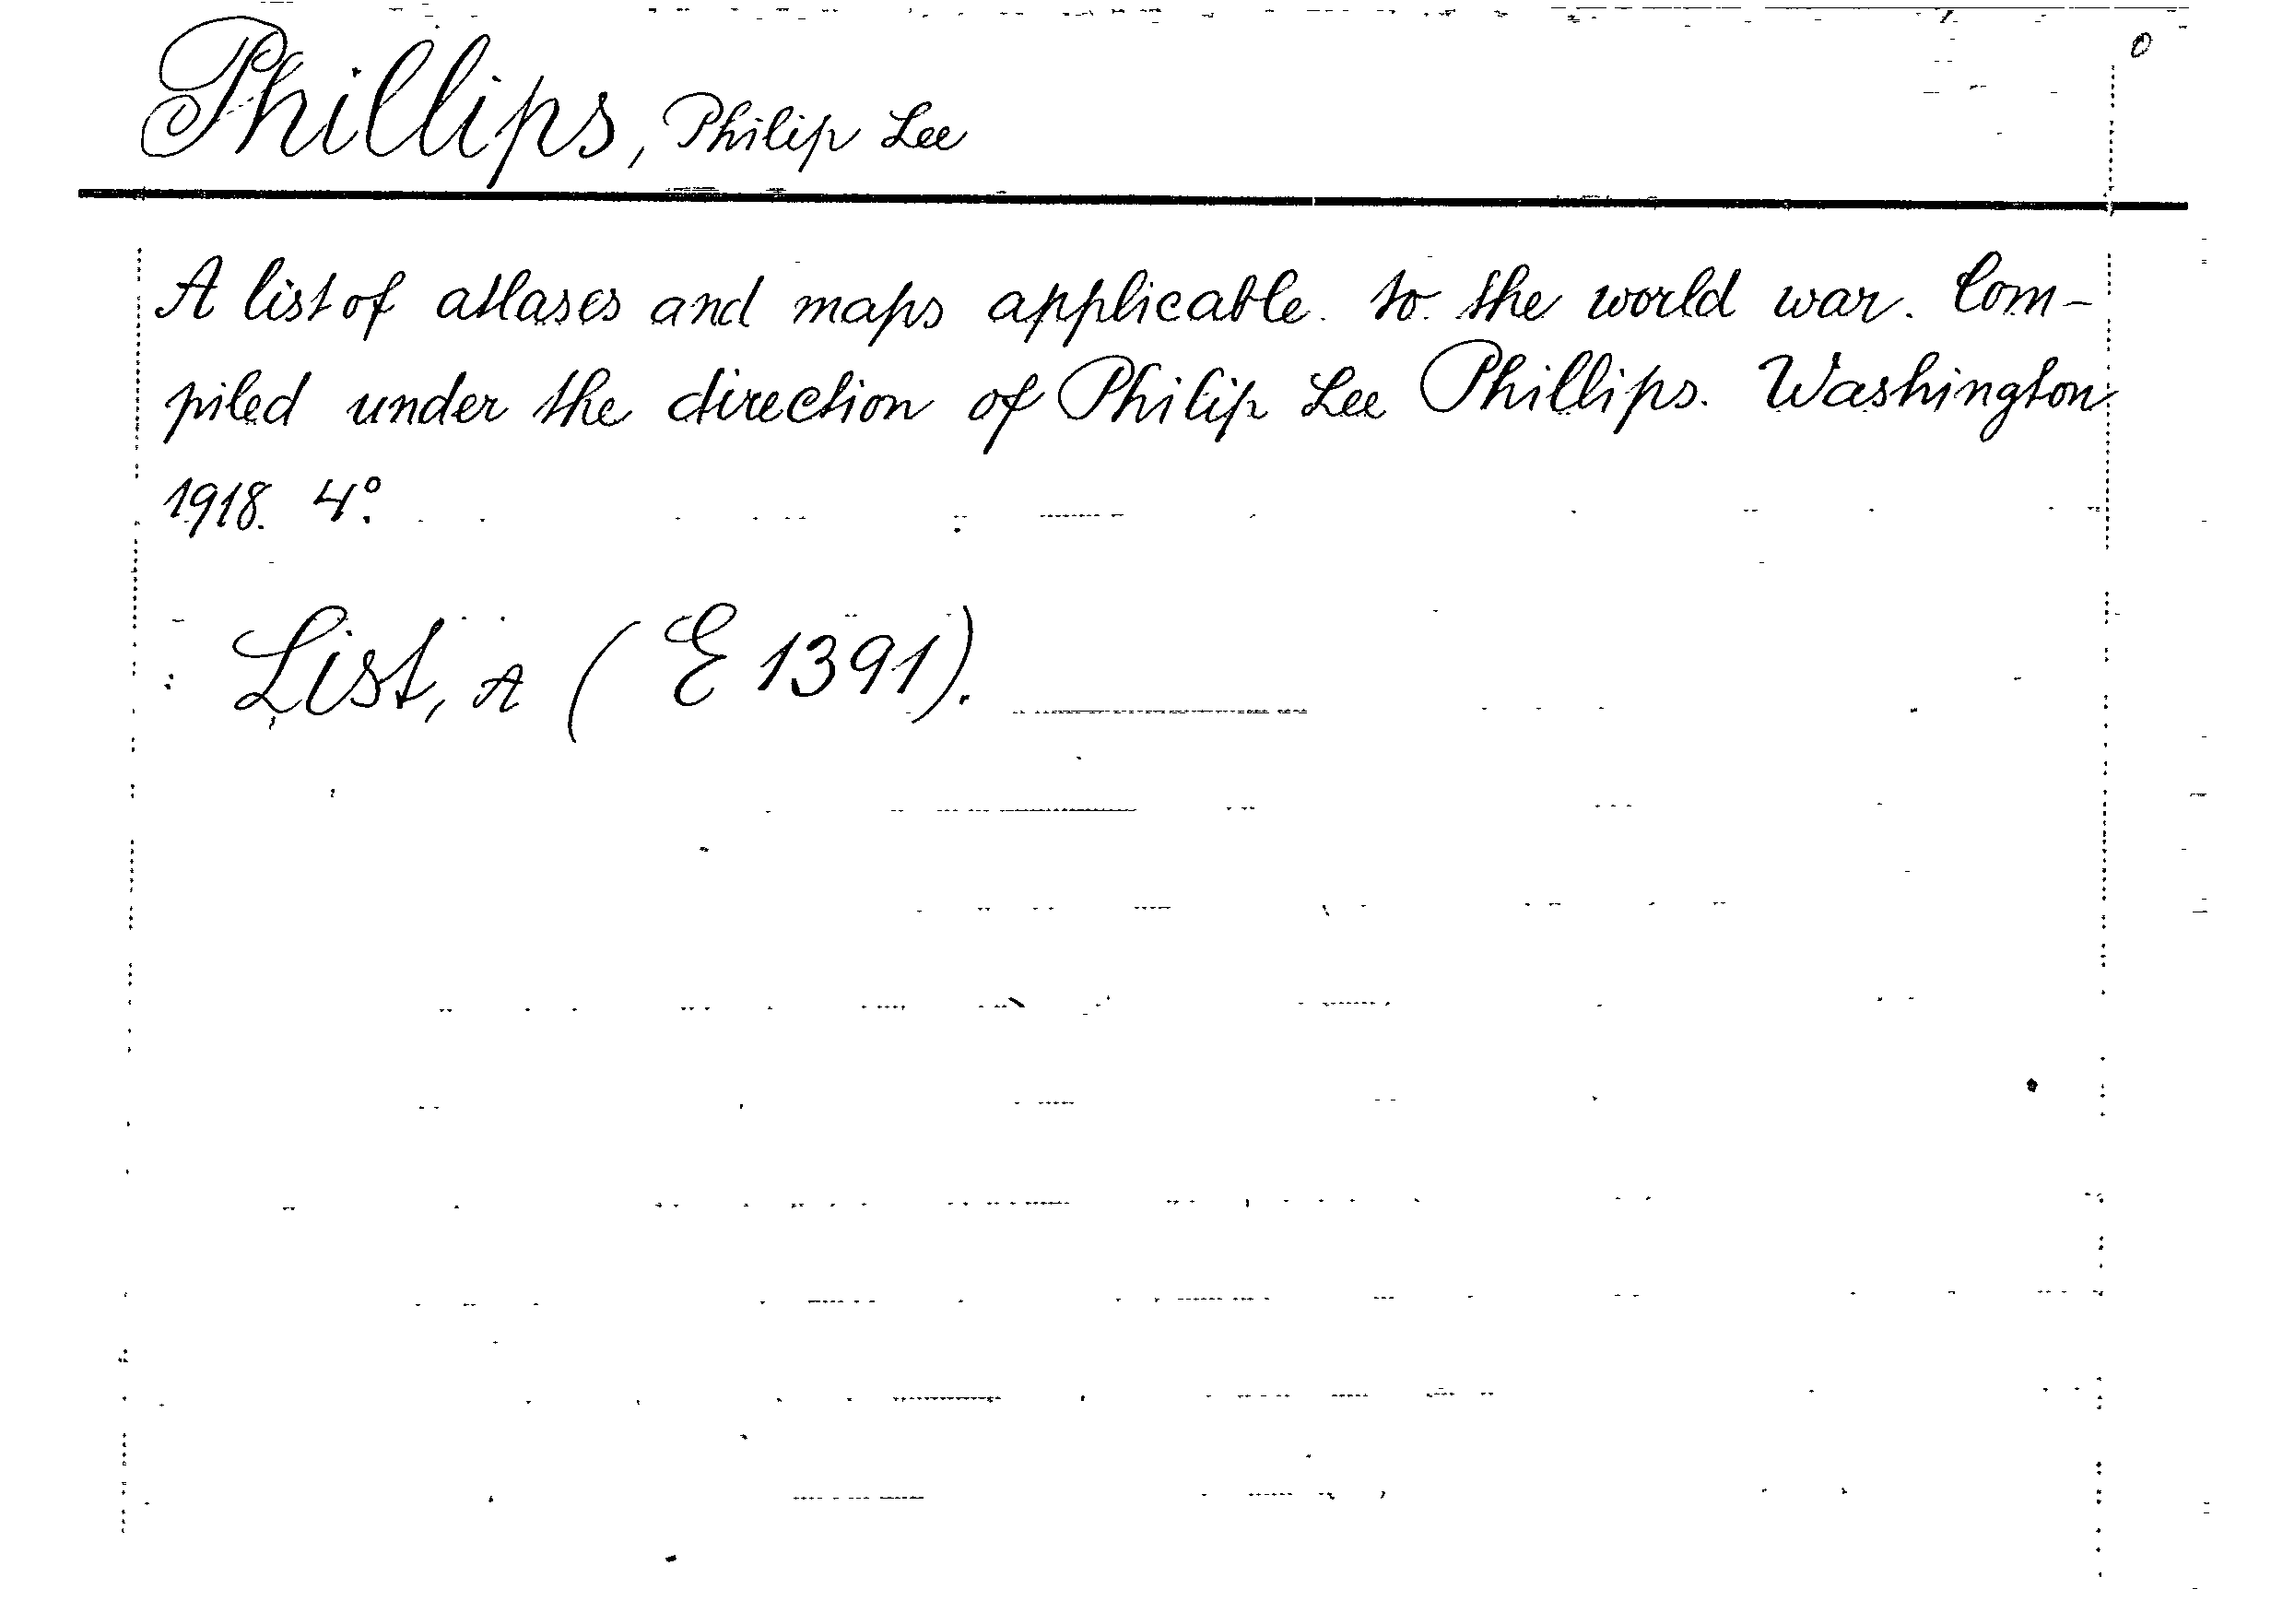 Phillips, Philip Lee
A list of atlases and maps applicable to the world war. Com-
piled under the direction of Philip Lee Phillips. Washington
1918. 4°.
List, A (E 1391).